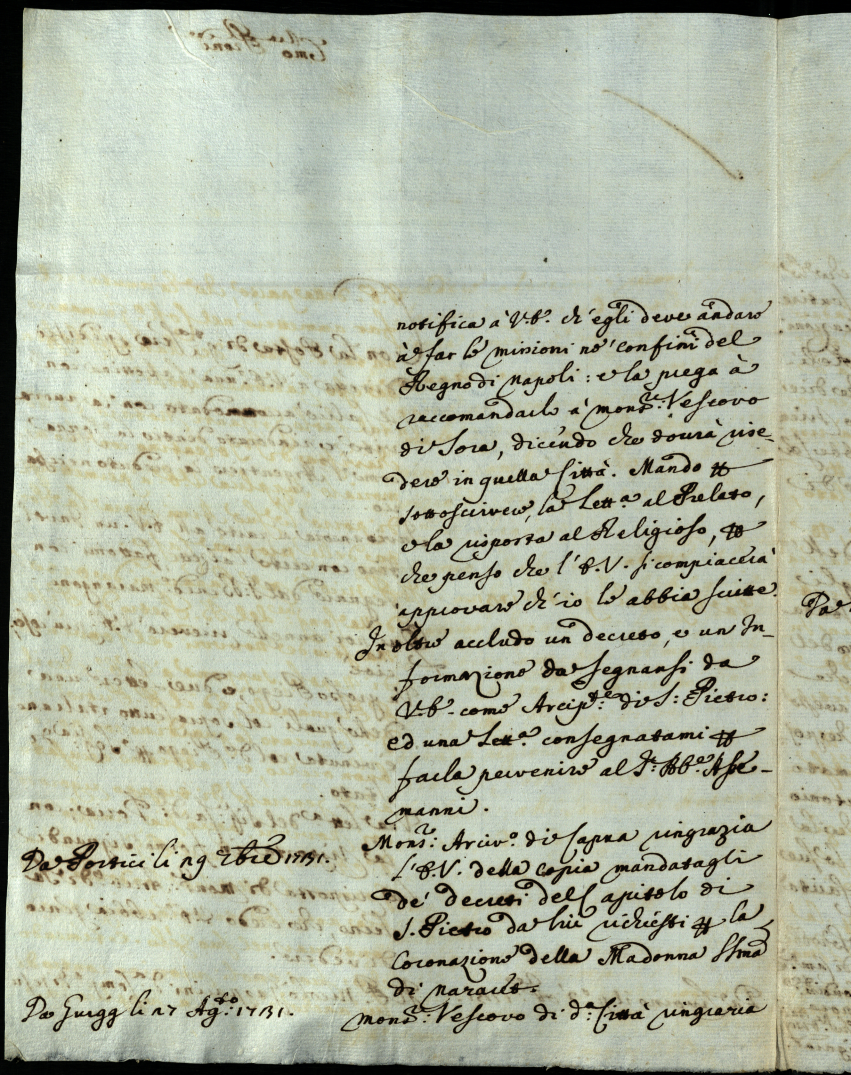 notifica à V.B. ch'egli deve andare
à far le missioni ne' confini del
Regno di Napoli: e la priega à
raccomandarlo à Mons.r Vescovo
di Sora, dicendo che dourà rise-
dere in quella Città. Mando
sottoscrivere, la Lett.a al Prelato,
e la risposta al Religioso,
che penso che l'E.V. si compiacerà
approvare ch'io le abbia scritte.
In oltre accludo un decreto, e un In-
formazione da segnarsi da
V.B. come Arcip.te di S. Pietro:
ed una Lett.a consegnatami
farla pervenire al S.r Abb.e Asse-
manni.
Mons.r Arciv.o di Capua ringrazia
Da Portici li 29 1731.
l'E.V. della copia mandatagli
de' decreti del Capitolo di
S. Pietro da lui richiesti la
Coronazione della Madonna SSma
di
Da li 27 Ag.to 1731.
Mons.r Vescovo di d.a Città ringrazia